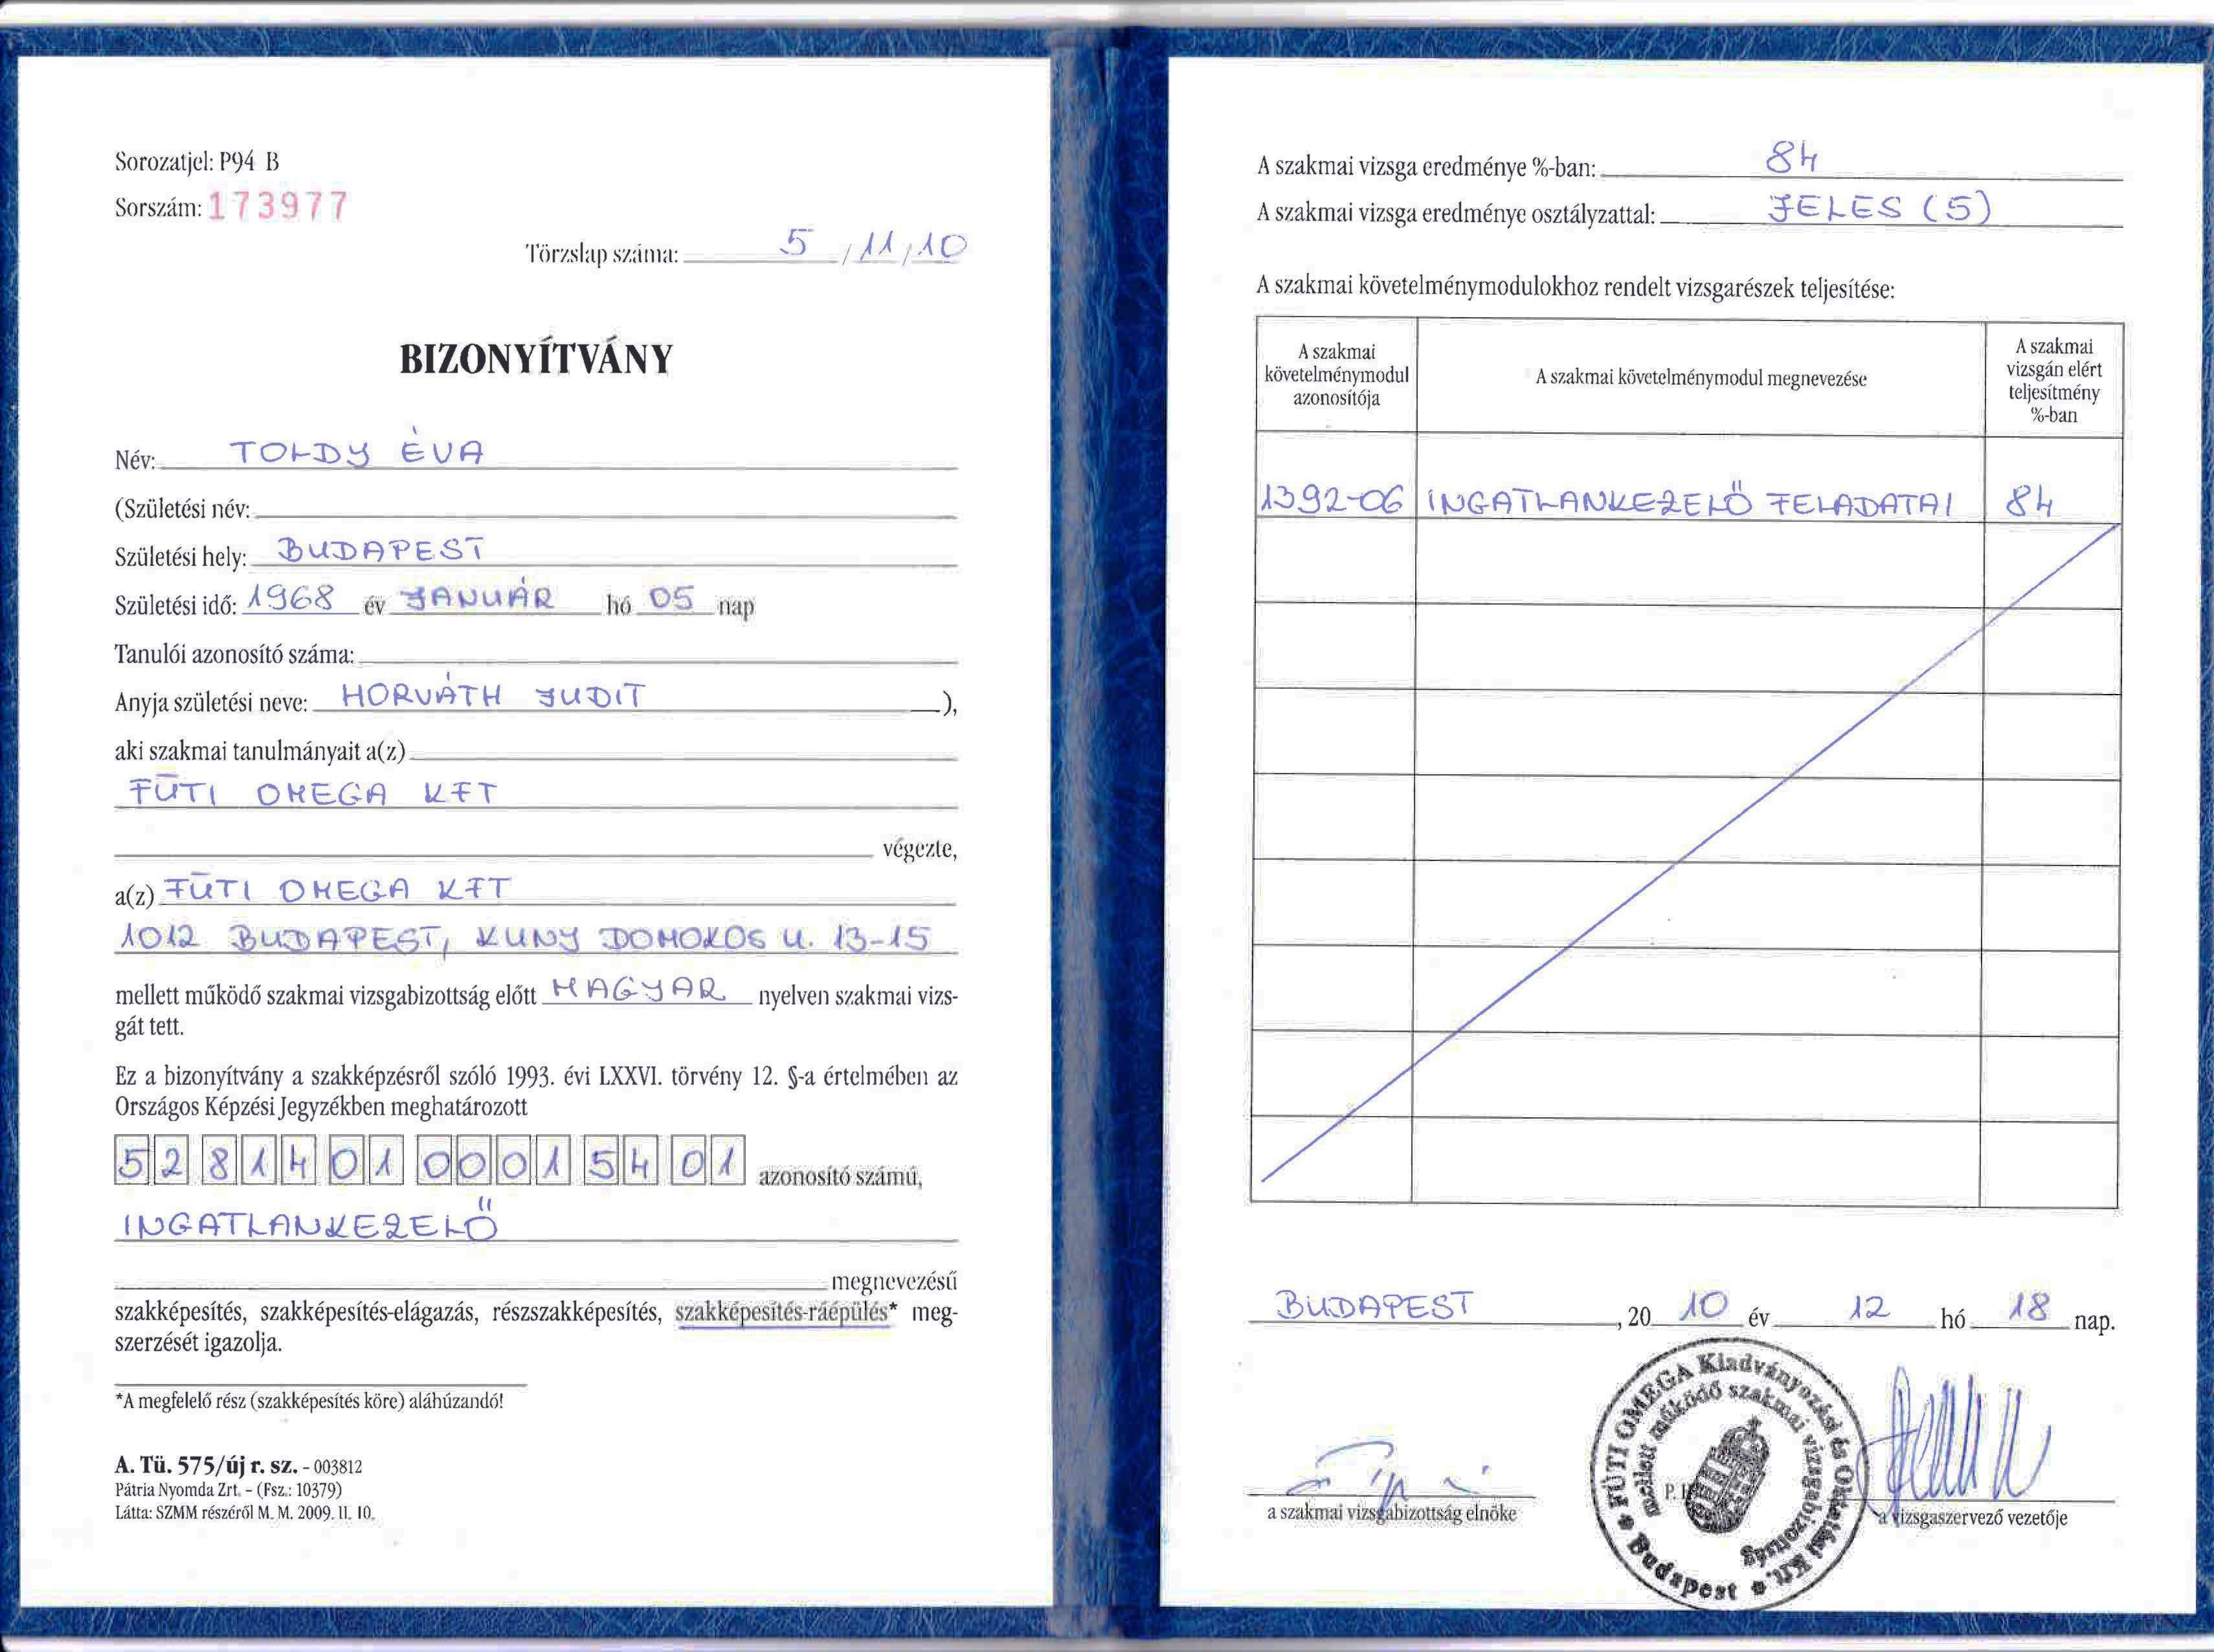 Sorozatjel: P94 B
Sorszám: 173977
Törzslap száma: 5 / 11 / 10
BIZONYÍTVÁNY
Név: TOLDY ÉVA
(Születési név:
Születési hely: BUDAPEST
Születési idő: 1968 év JANUÁR hó 05 nap
Tanulói azonosító száma:
Anyja születési neve: HORVÁTH JUDIT ),
aki szakmai tanulmányait a(z)
FÜTI OMEGA KFT
végezte,
a(z) FÜTI OMEGA KFT
1012 BUDAPEST, KUNY DOMOKOS U. 13-15
mellett működő szakmai vizsgabizottság előtt MAGYAR nyelven szakmai vizs-
gát tett.
Ez a bizonyítvány a szakképzésről szóló 1993. évi LXXVI. törvény 12. §-a értelmében az
Országos Képzési Jegyzékben meghatározott
52 814 01 0001 54 01 azonosító számú,
INGATLANKEZELŐ
megnevezésű
szakképesítés, szakképesítés-elágazás, részszakképesítés, szakképesítés-ráépülés* meg-
szerzését igazolja.
*A megfelelő rész (szakképesítés köre) aláhúzandó!
A. Tü. 575/új r. sz. - 003812
Pátria Nyomda Zrt. – (Fsz.: 10379)
Látta: SZMM részéről M. M. 2009. 11. 10.
A szakmai vizsga eredménye %-ban: 84
A szakmai vizsga eredménye osztályzattal: JELES (5)
A szakmai követelménymodulokhoz rendelt vizsgarészek teljesítése:
A szakmai követelménymodul azonosítója
A szakmai követelménymodul megnevezése
A szakmai vizsgán elért teljesítmény %-ban
1392-06 INGATLANKEZELŐ FELADATAI 84
BUDAPEST, 2010 év 12 hó 18 nap.
FÜTI OMEGA Kiadványozási és Oktatási Kft. Budapest
mellett működő szakmai vizsgabizottság
P. H.
a szakmai vizsgabizottság elnöke
a vizsgaszervező vezetője